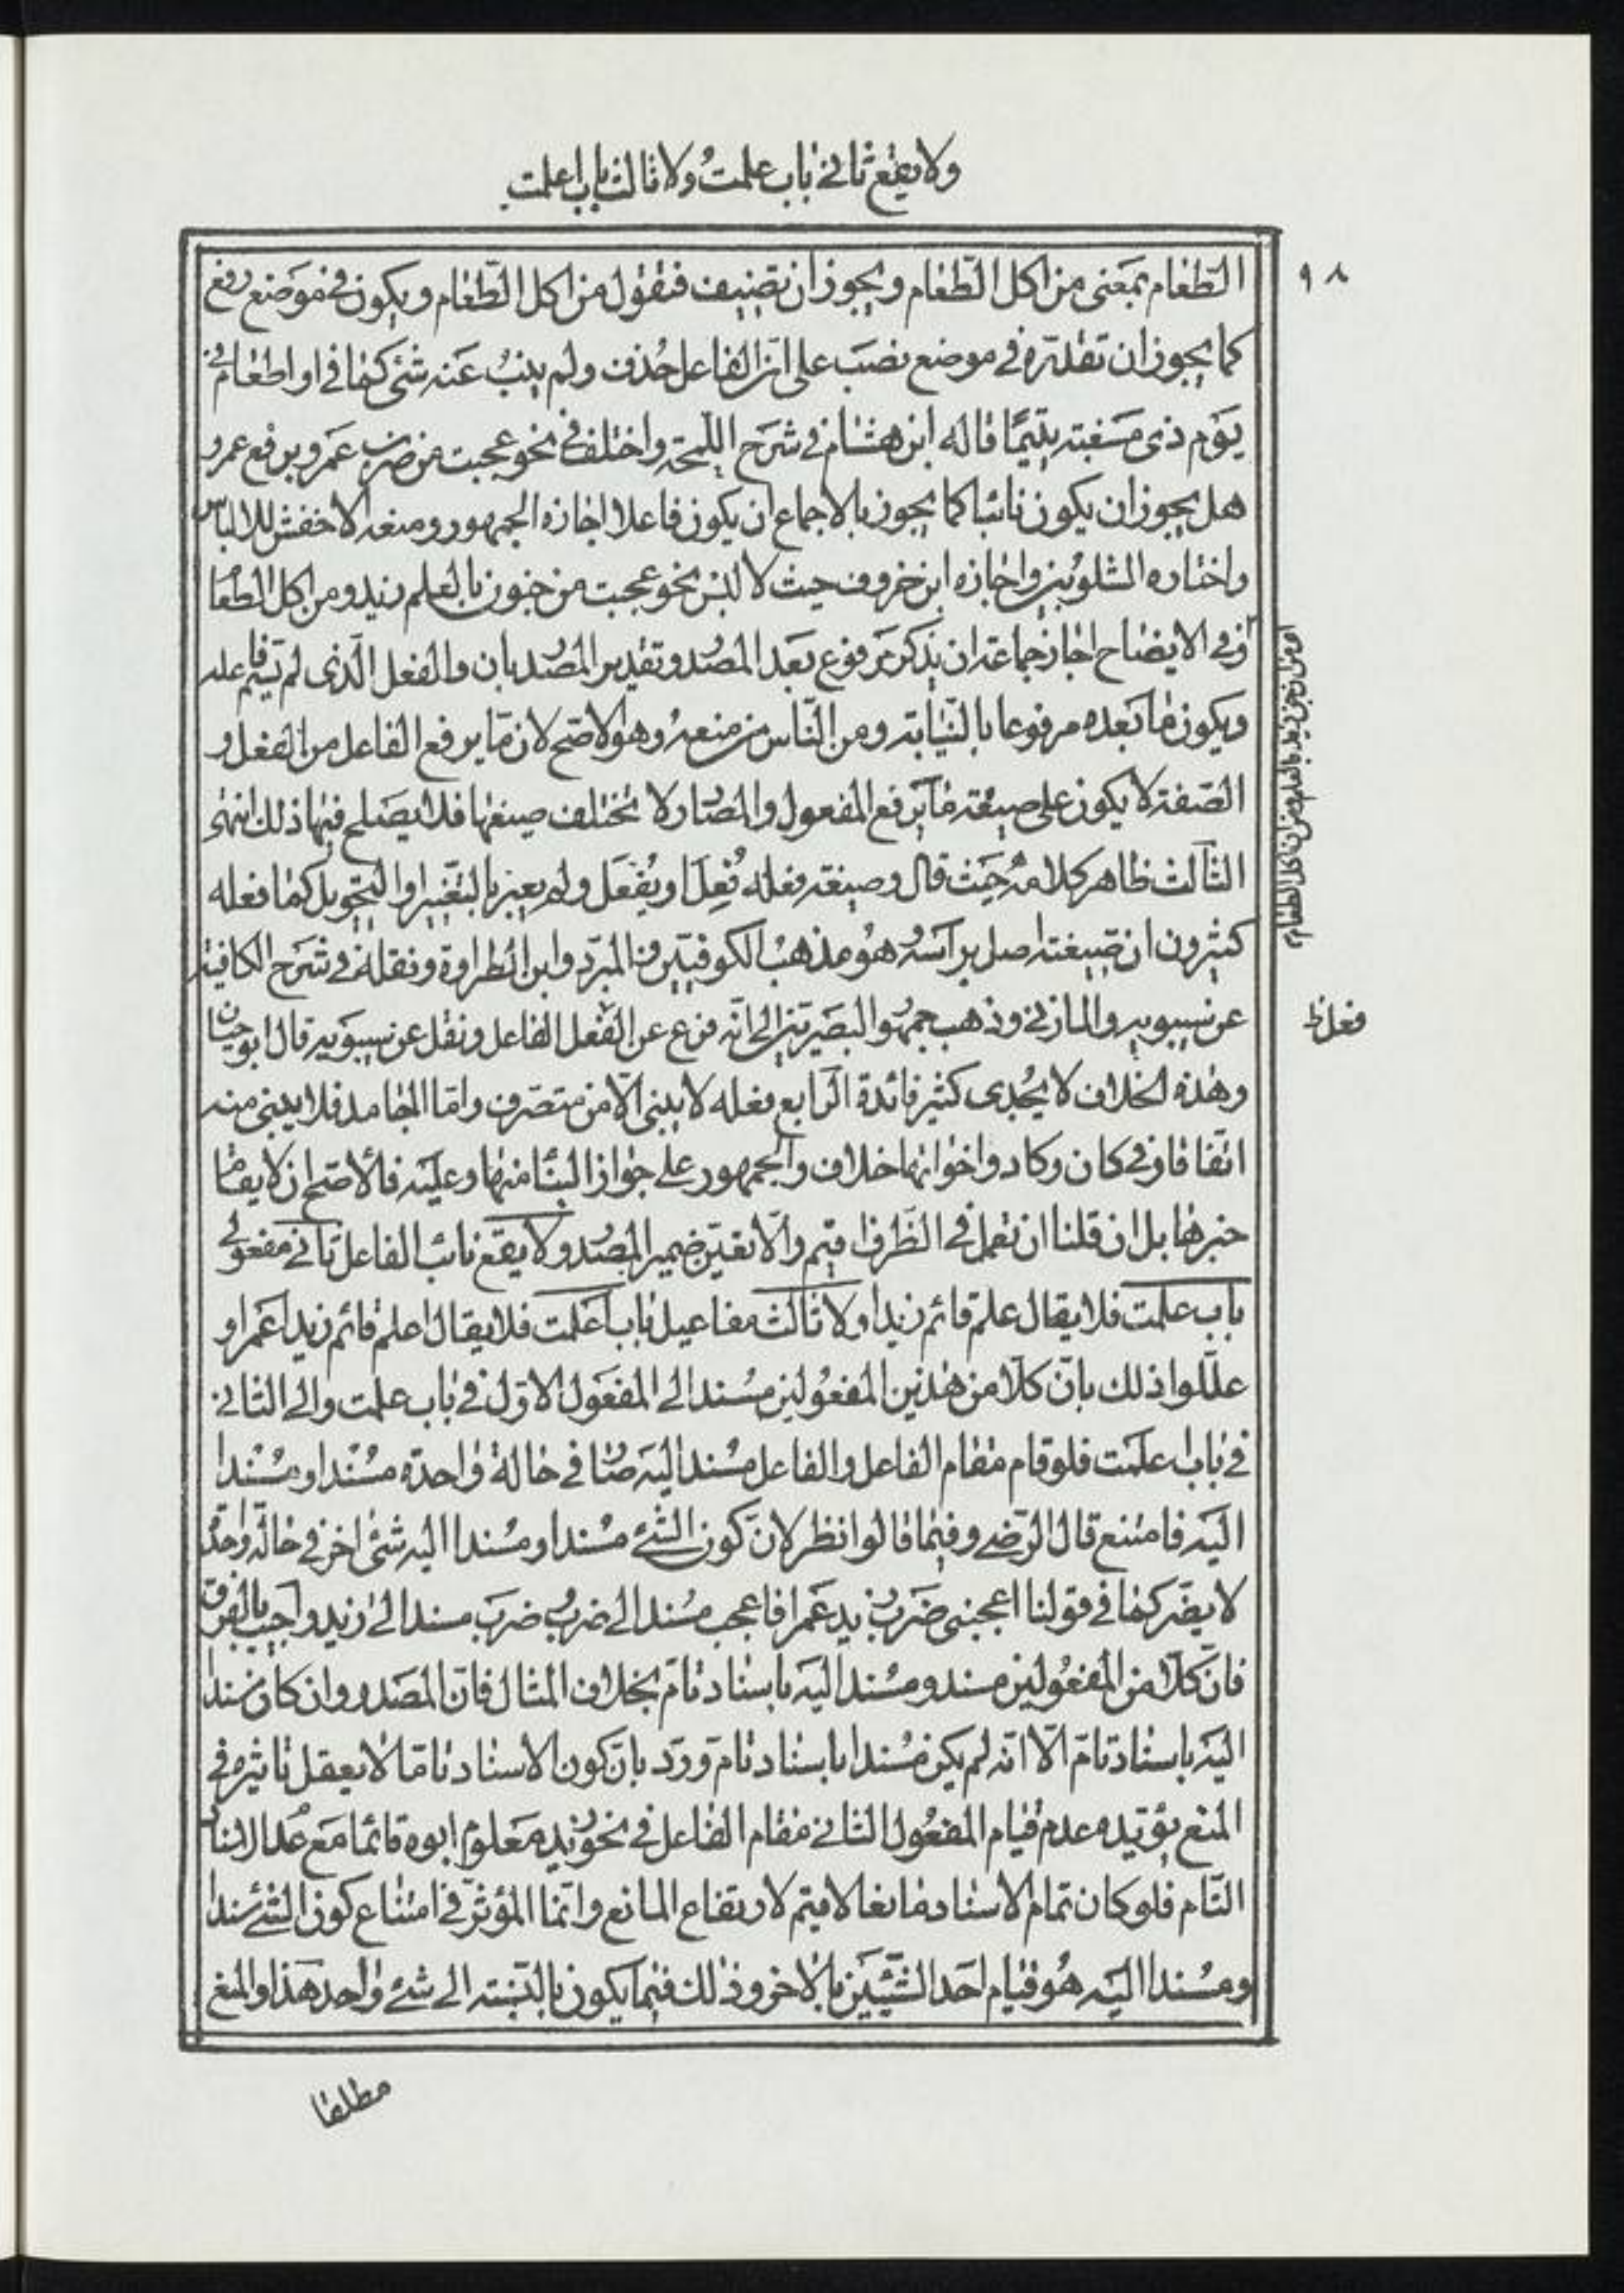 ولا يقع ثاني باب علمت ولا ثالث باب اعلمت
٩٨
الطعام بمعنى من اكل الطعام ويجوز ان تضيف فتقول من اكل الطعام ويكون في موضع رفع
كما يجوز ان تقدره في موضع نصب على ان الفاعل حذف ولم ينب عنه شئ كما في او اطعام في
يوم ذي مسغبة يتيما قاله ابن هشام في شرح اللمحة واختلف في نحو عجبت من ضرب عمرو برفع عمرو
هل يجوز ان يكون نائبا كما يجوز بالاجماع ان يكون فاعلا اجازه الجمهور ومنعه الاخفش للالباس
واختاره الشلوبين واجازه ابن خروف حيث لا لبس نحو عجبت من جنون بالعلم زيد ومن اكل الطعام
وفي الايضاح اجاز جماعة ان يذكر مرفوع بعد المصدر وتقدير المصدر بان والفعل الذي لم يسم فاعله
ويكون ما بعده مرفوعا بالنيابة ومن الناس من منعه وهو الاصح لان ما يرفع الفاعل من الفعل و
الصفة لا يكون على صيغة ما يرفع المفعول والمصادر لا تختلف صيغها فلا يصلح فيها ذلك انتهى
الثالث ظاهر كلامه حيث قال وصيغة فعله فُعِل او يُفعَل ولم يعبر بالتغيير او التحويل كما فعله
كثيرون ان صيغته اصل براسه وهو مذهب الكوفيين والمبرد وابن الطراوة ونقله في شرح الكافية
عن سيبويه والمازني وذهب جمهور البصريين الى انه فرع عن الفعل الفاعل ونقل عن سيبويه قال ابو حيان
فعل ظ
وهذه الخلاف لا يجدى كثير فائدة الرابع فعله لا يبنى الا من متصرف واما الجامد فلا يبنى منه
اتفاقا وفي كان وكاد واخواتهما خلاف والجمهور على جواز البناء منها وعليه فالاصح ان لا يقام
خبرها بل ان قلنا ان تعمل في الظرف اقيم والا تعين ضمير المصدر ولا يقع نائب الفاعل ثاني مفعولي
باب علمت فلا يقال علم قائم زيدا ولا ثالث مفاعيل باب اعلمت فلا يقال اعلم قائم زيدا عمرا و
عللوا ذلك بان كلا من هذين المفعولين مسند الى المفعول الاول في باب علمت والى الثاني
في باب اعلمت فلو قام مقام الفاعل والفاعل مسند اليه صار في حالة واحدة مسندا ومسندا
اليه فامتنع قال الرضي وفيما قالوا نظر لان كون الشئ مسندا ومسندا اليه شئ اخر في حالة واحدة
لا يضر كما في قولنا اعجبني ضرب زيد عمرا فاعجب مسند الى ضرب وضرب مسند الى زيد واجيب بالفرق
فان كلا من المفعولين مسند ومسند اليه باسناد تام بخلاف المثال فان المصدر وان كان مسندا
اليه باسناد تام الا انه لم يكن مسندا باسناد تام ورد بان كون الاسناد تاما لا يعقل تاثيره في
المنع يؤيده عدم قيام المفعول الثاني مقام الفاعل في نحو زيد معلوم ابوه قائما مع عدم الاسناد
التام فلو كان تمام الاسناد مانعا لاقيم لارتفاع المانع وانما المؤثر في امتناع كون الشئ مسندا
ومسندا اليه هو قيام احد الشيئين بالاخر وذلك فيما يكون بالنسبة الى شئ واحد هذا والمنع
مطلقا